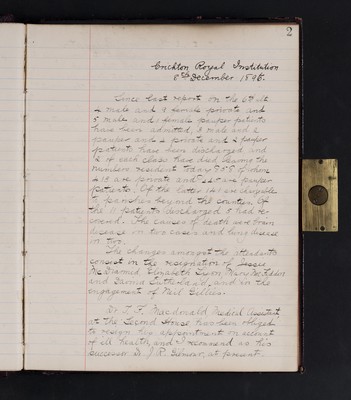 2
Crichton Royal Institution
8th December 1898.
Since last report on the 6th
2 male and 4 female private and
5 male and 1 female pauper patients
have been admitted, 3 male and 2
pauper and 2 private and 2 pauper
patients have been discharged and
2 of each class have died leaving the
number resident today of whom
are private and are pauper
patients. Of the latter are chargeable
to parishes beyond the counties. Of
the 11 patients discharged 8 had re-
covered. The causes of death were brain
disease in two cases and lung disease
in two.
The changes amongst the attendants
consist in the resignation of Jessie
McDiarmid, Elizabeth
and Jamina Sutherland, and in the
engagement of Neil Gillies.
Dr T. F. Macdonald Medical Assistant
at the Second House has been obliged
to resign his appointment on account
of ill health, and I recommend as his
successor Dr J. R. Gilmour, at present